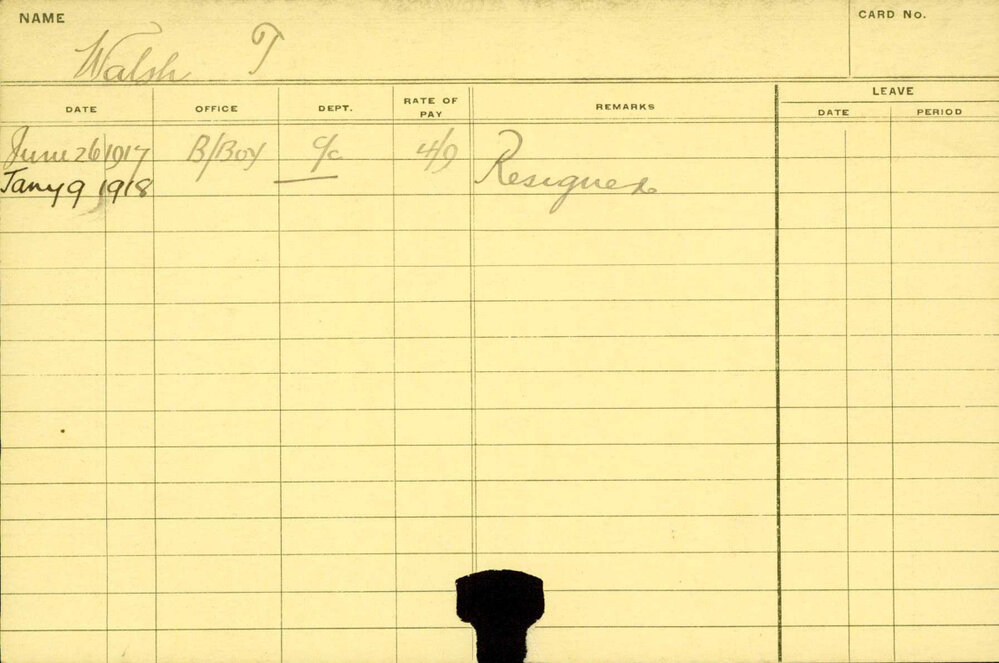 NAME
CARD No.
Walsh T
LEAVE
DATE OFFICE DEPT. RATE OF PAY REMARKS DATE PERIOD
June 26 1917 B/Boy C/c 4/9 Resigned
Jany 9 1918